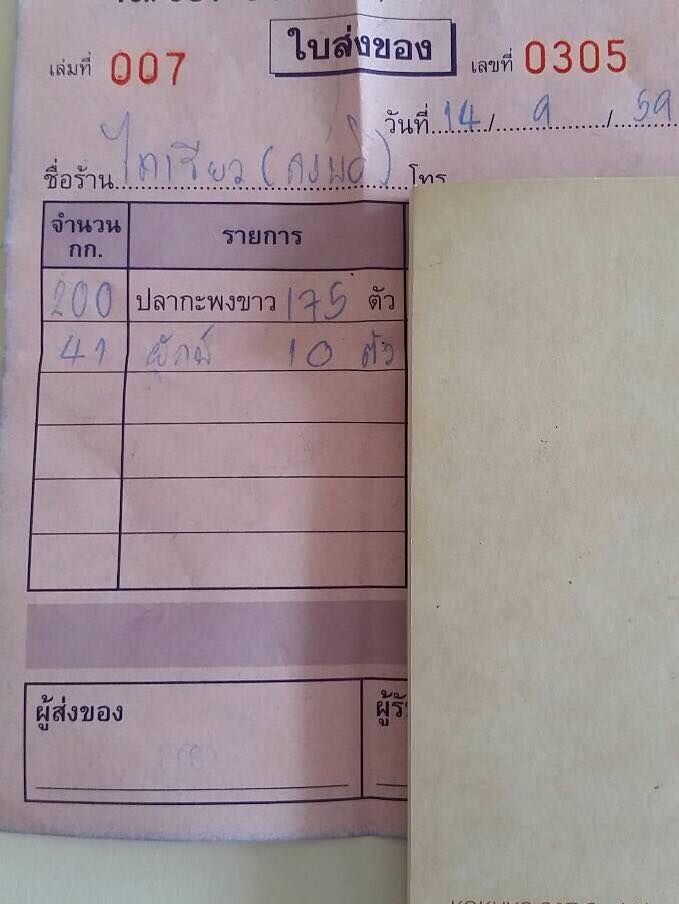 ใบส่งของ
เล่มที่ 007 เลขที่ 0305
วันที่ 14 / 9 / 59
ชื่อร้าน โทร
จำนวน กก. รายการ
200 ปลากะพงขาว 175 ตัว
41 ยักษ์ 10 ตัว
ผู้ส่งของ